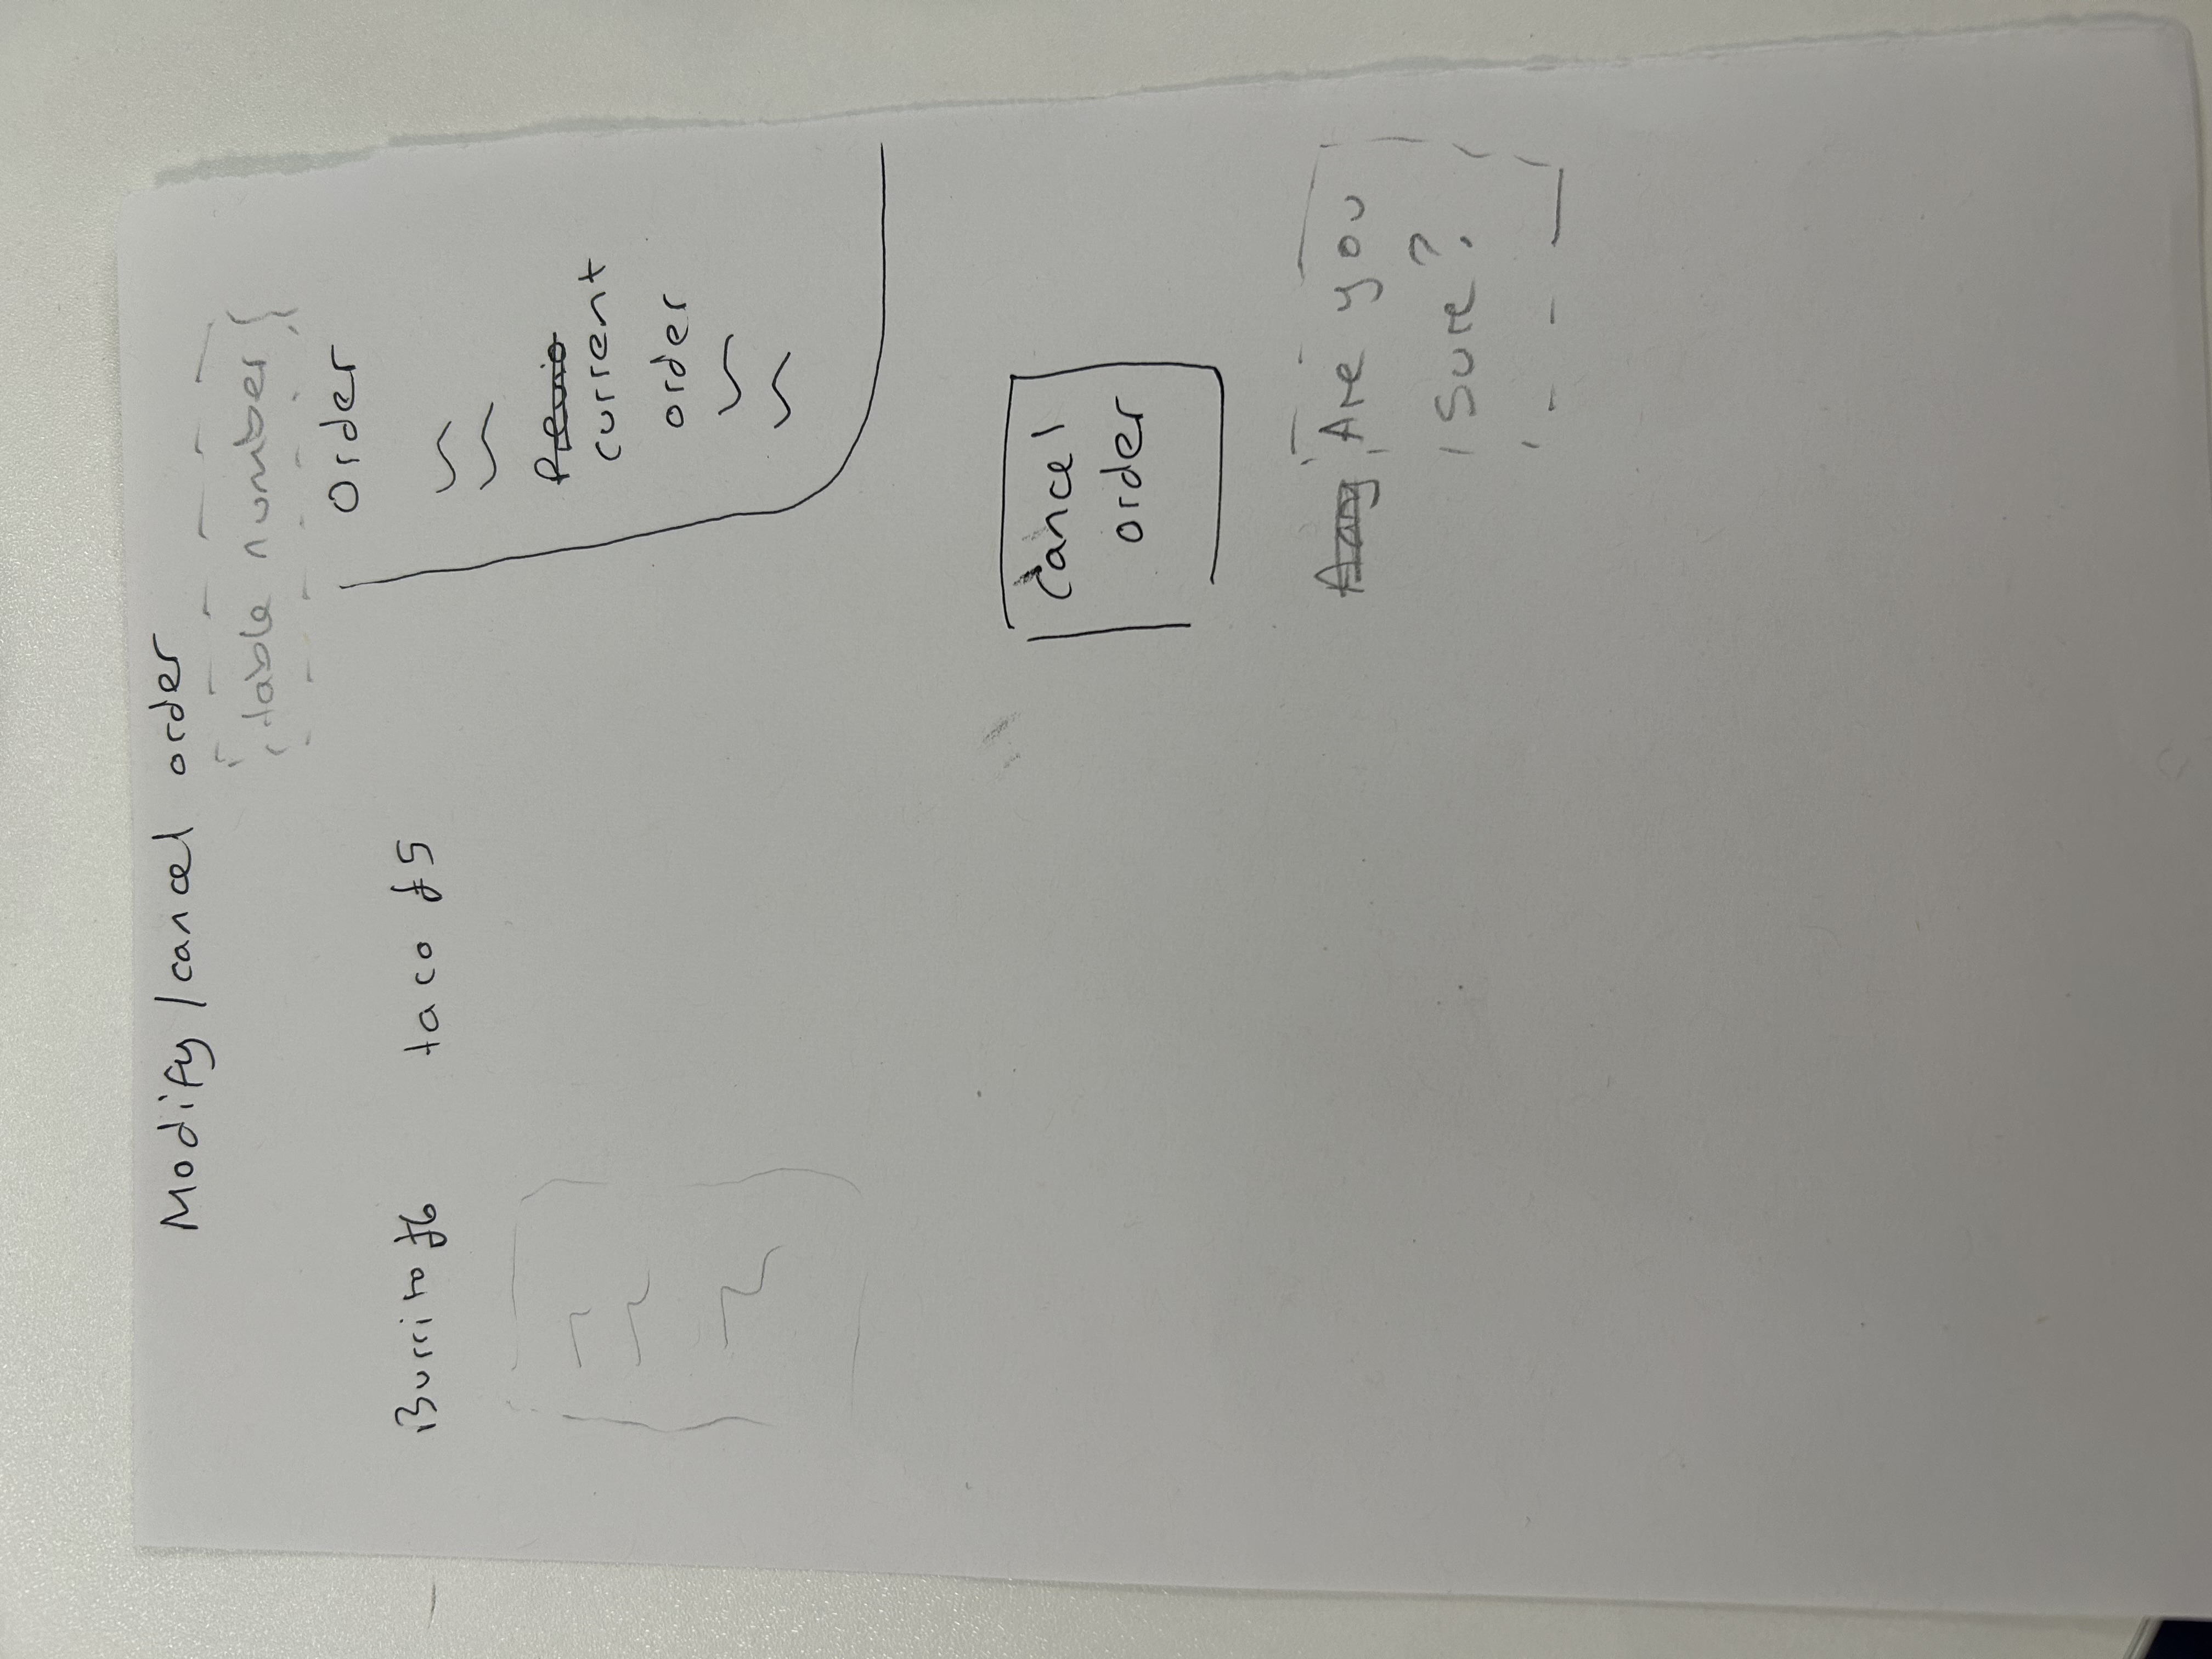 Modify/cancel order
table number
Order
Burrito £6 taco £5
current
order
Cancel
order
Are you
Sure?